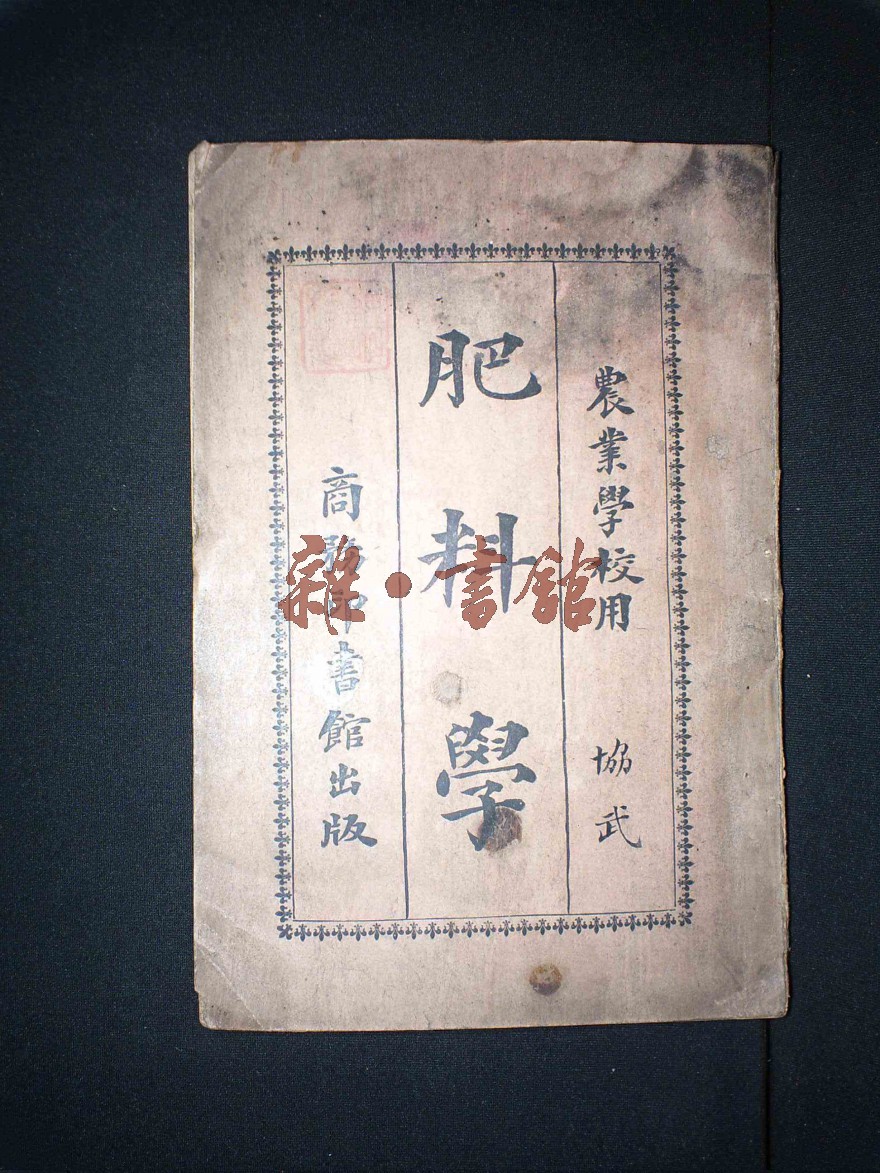 農業學校用
協武
肥料學
商務印書館出版
雜·書館